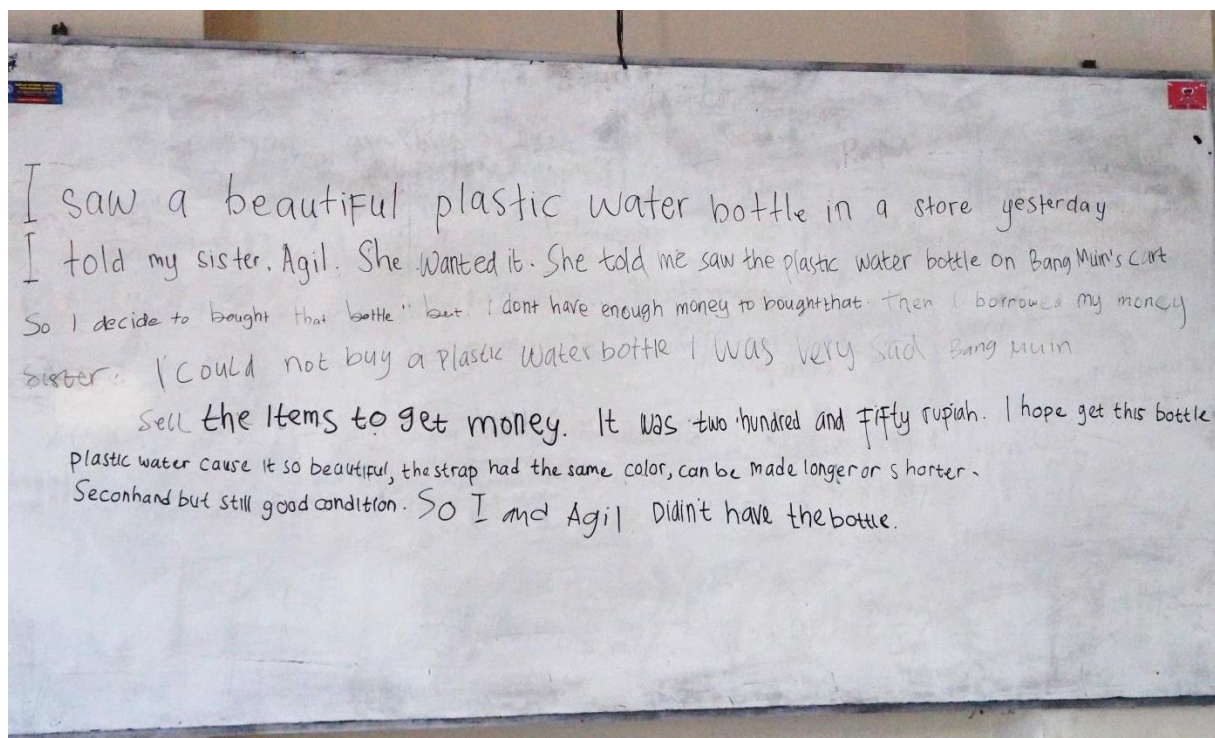 I saw a beautiful plastic water bottle in a store yesterday
I told my sister, Agil. She wanted it. She told me saw the plastic water bottle on Bang Muin's cart
So I decide to bought that bottle" but I dont have enough money to bought that. Then I borrowed my money
sister. I could not buy a plastic water bottle I was very sad Bang Muin
Sell the Items to get money. It was two hundred and Fifty rupiah. I hope get this bottle
plastic water cause it so beautiful, the strap had the same color, can be made longer or shorter.
Seconhand but still good condition. So I and Agil Didin't have the bottle.